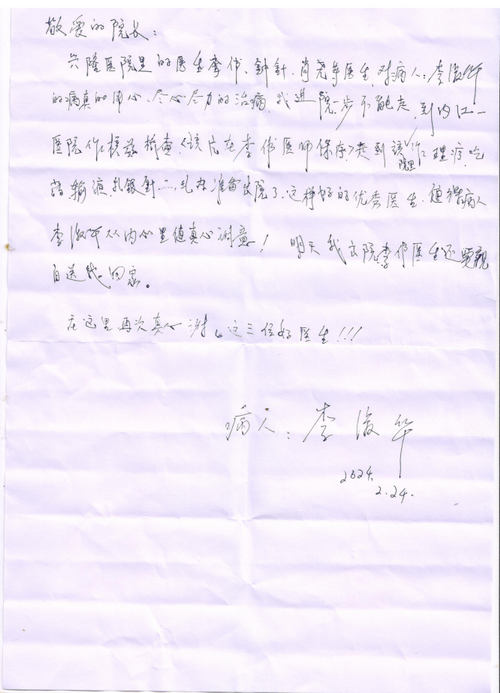 敬爱的院长:
兴隆医院里的医生李伟、钟针、肖尧等医生,对病人:李俊华
的病真的用心、尽心尽力的治病,我进院步不能走,到内江一
医院作核磁检查(该片在李伟医师保存)走到该院里作:理疗,吃
药输液扎银针二、扎, 准备出院了,这样好的优秀医生,值得病人
李俊华从内心里值真心满意! 明天我出院李伟医生还要亲
自送我回家。
在这里再次真心谢谢这三位好医生!!!
病人:李俊华
2024.
2.24.